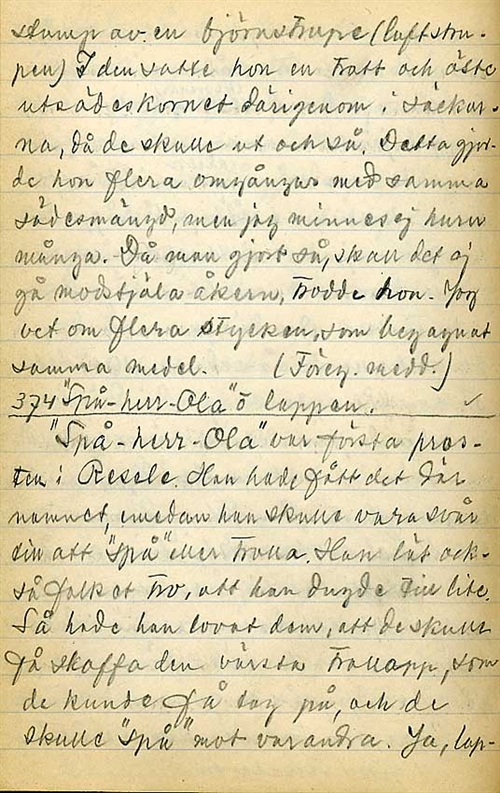 stump av en björnstrupe (luftstru-
pen) I den satte hon en tratt och öste
utsädeskornet därigenom i säckar-
na, då de skulle ut och så. Detta gjor-
de hon flera omgångar med samma
sädesmängd, men jag minnes ej huru
många. Då man gjort så, skall det ej
gå modstjäla åkern, trodde hon. Jag
vet om flera stycken, som begagnat
samma medel. (Föreg. medd.)
374 "Spå-herr-Ola" o lappen. ✓
"Spå-herr-Ola" var första präs-
ten i Resele. Han hade fått det där
namnet, emedan han skulle vara svår
till att "spå" eller trolla. Han lät ock-
så folket tro, att han dugde till lite.
Så hade han lovat dem, att de skulle
få skaffa den värsta trollapp, som
de kunde få tag på, och de
skulle "spå" mot varandra. Ja, lap-